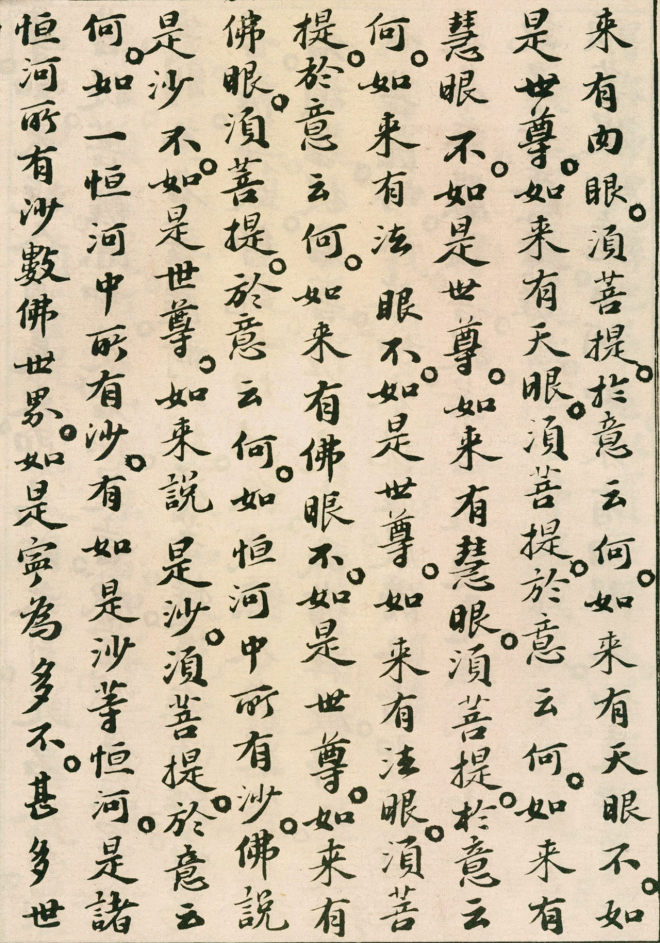 来有肉眼。須菩提。於意云何。如来有天眼不。如
是世尊。如来有天眼。須菩提。於意云何。如来有
慧眼不。如是世尊。如来有慧眼。須菩提。於意云
何。如来有法眼不。如是世尊。如来有法眼。須菩
提。於意云何。如来有佛眼不。如是世尊。如来有
佛眼。須菩提。於意云何。如恒河中所有沙。佛說
是沙不。如是世尊。如来說是沙。須菩提。於意云
何。如一恒河中所有沙。有如是沙等恒河。是諸
恒河所有沙數佛世界。如是寧為多不。甚多世